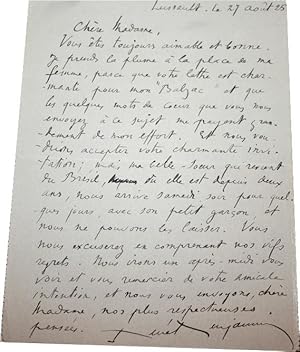 Lussault, le 27 août 25
Chère Madame,
Vous êtes toujours aimable et bonne.
Je prends la plume à la place de ma
femme, parce que votre lettre est char-
mante pour mon "Balzac" et que
les quelques mots de cœur que vous nous
envoyez à ce sujet me payent gran-
dement de mon effort. Et nous vou-
drions accepter votre charmante invi-
tation; mais ma belle-sœur qui revient
du Brésil, où elle est depuis deux
ans, nous arrive samedi soir pour quel-
ques jours, avec son petit garçon, et
nous ne pouvons les laisser. Vous
nous excuserez en comprenant nos vifs
regrets. Nous irons un après-midi vous
voir et vous remercier de votre amicale
intention, et nous vous envoyons, chère
Madame, nos plus respectueuses
pensées.